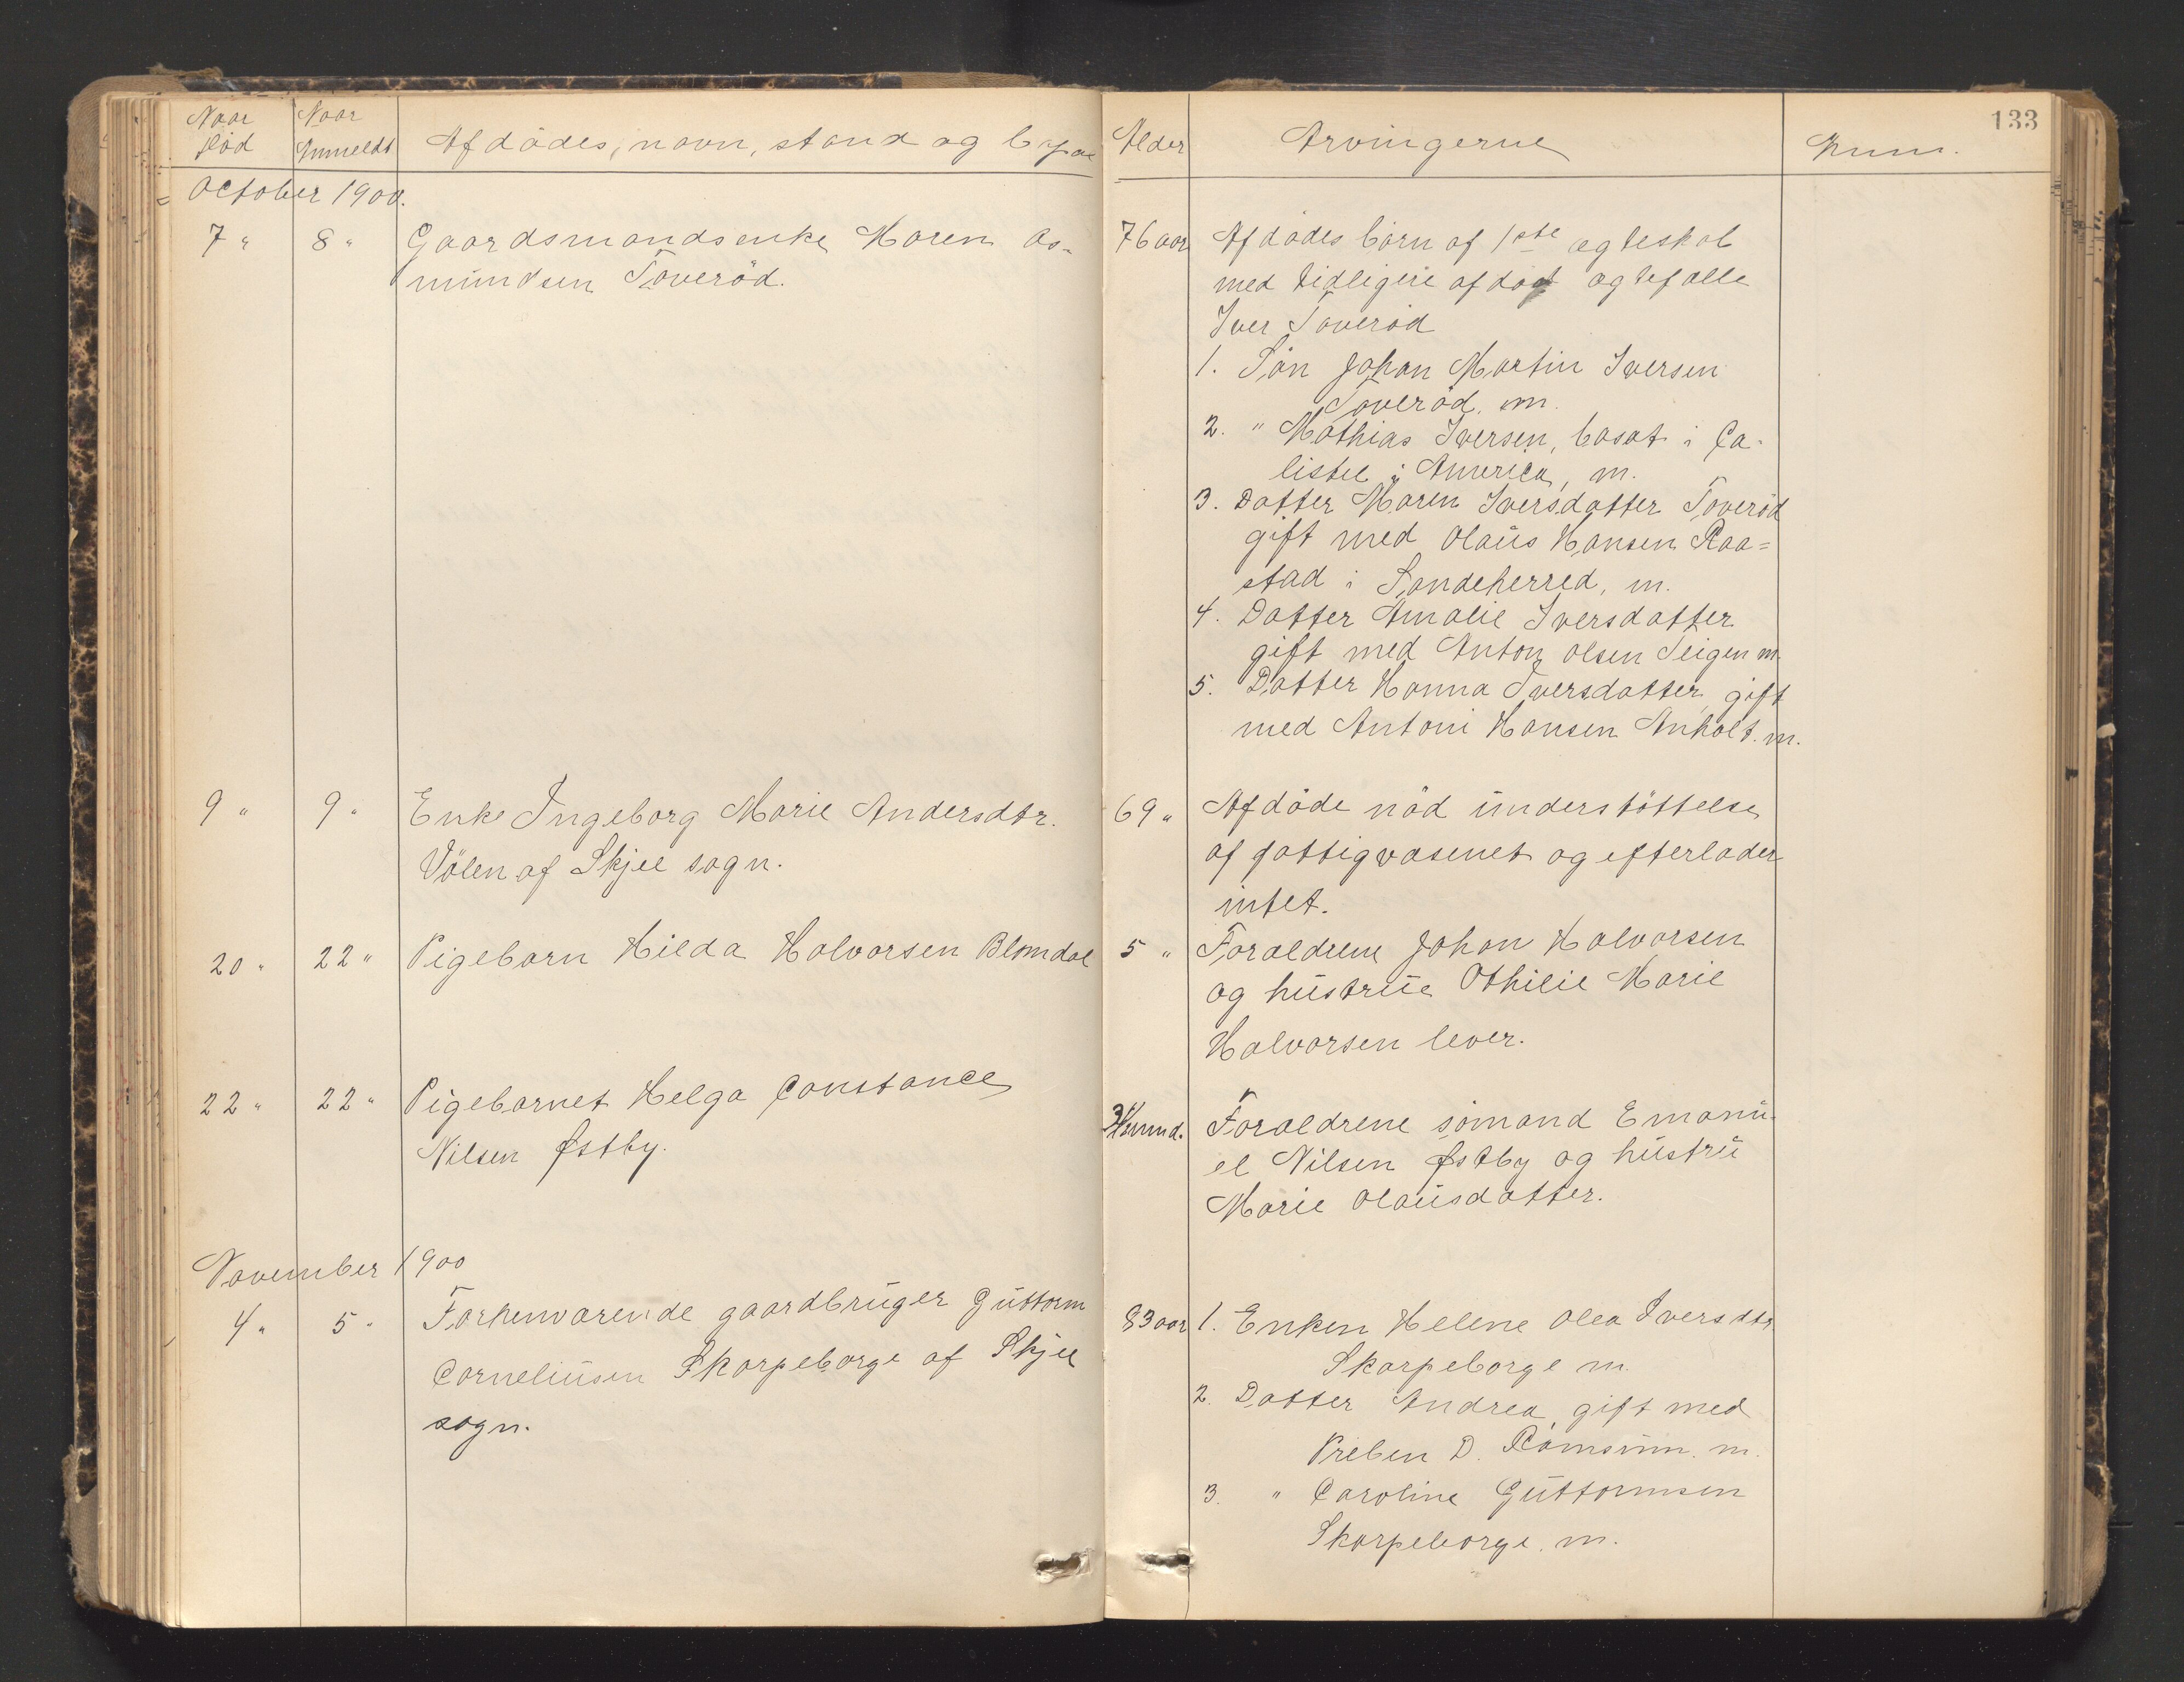 133
Naar död
Naar Anmeldt
Afdödes, navn, stand og bopæl
Alder
Arvingerne
Anm.
October 1900.
7 " 8 " Gaardsmandsenke Maren As-
mundsen Toveröd.
76 aar Afdödes börn af 1ste egteskab
med tidligere afdöd egtefælle
Iver Toveröd
1. Sön Johan Martin Iversen
Toveröd. m.
2. " Mathias Iversen, bosat i Ca-
listel i America, m.
3. Datter Maren Iversdatter Toveröd
gift med Olaus Hansen Raa=
stad i Sandeherred, m.
4. Datter Amalie Iversdatter
gift med Anton Olsen Teigen m.
5. Datter Hanna Iversdatter, gift
med Antoni Hansen Anholt. m.
9 " 9 " Enke Ingeborg Marie Andersdtr.
Völen af Skjee sogn.
69 " Afdöde nöd understöttelse
af fattigvæsenet og efterlader
intet.
20 " 22 " Pigebarn Hilda Halvorsen Blomdal
5 " Forældrene Johan Halvorsen
og hustrue Othilie Marie
Halvorsen lever.
22 " 22 " Pigebarnet Helga Constance
Nilsen Østby.
mnd. Forældrene sömand Emanu-
el Nilsen Østby og hustru
Marie Olausdatter.
November 1900
4 " 5 " Forhenværende gaardbruger Guttorm
Corneliusen Skarpeborge af Skjee
sogn.
83 aar 1. Enken Helene Olea Iversdtr
Skarpeborge m.
2. Datter Andrea, gift med
Preben D. Ramsum. m.
3. " Caroline Guttormsen
Skarpeborge. m.